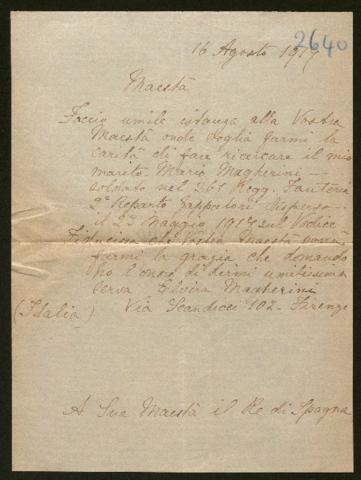 2640
16 Agosto 1917
Maestà
Faccio umile istanza alla Vostra
Maestà onde voglia farmi la
carità di fare ricercare il mio
marito Mario Magherini —
soldato nel 261 Regg. Fanteria
2° Reparto Zappatori disperso
il 23 Maggio 1917 sul Vodice
Fiduciosa che Vostra Maestà vorrà
farmi la grazia che domando
ho l'onore di dirmi umilissima
serva Elvira Magherini
(Italia) Via Scandicci 102 - Firenze
A Sua Maestà il Re di Spagna